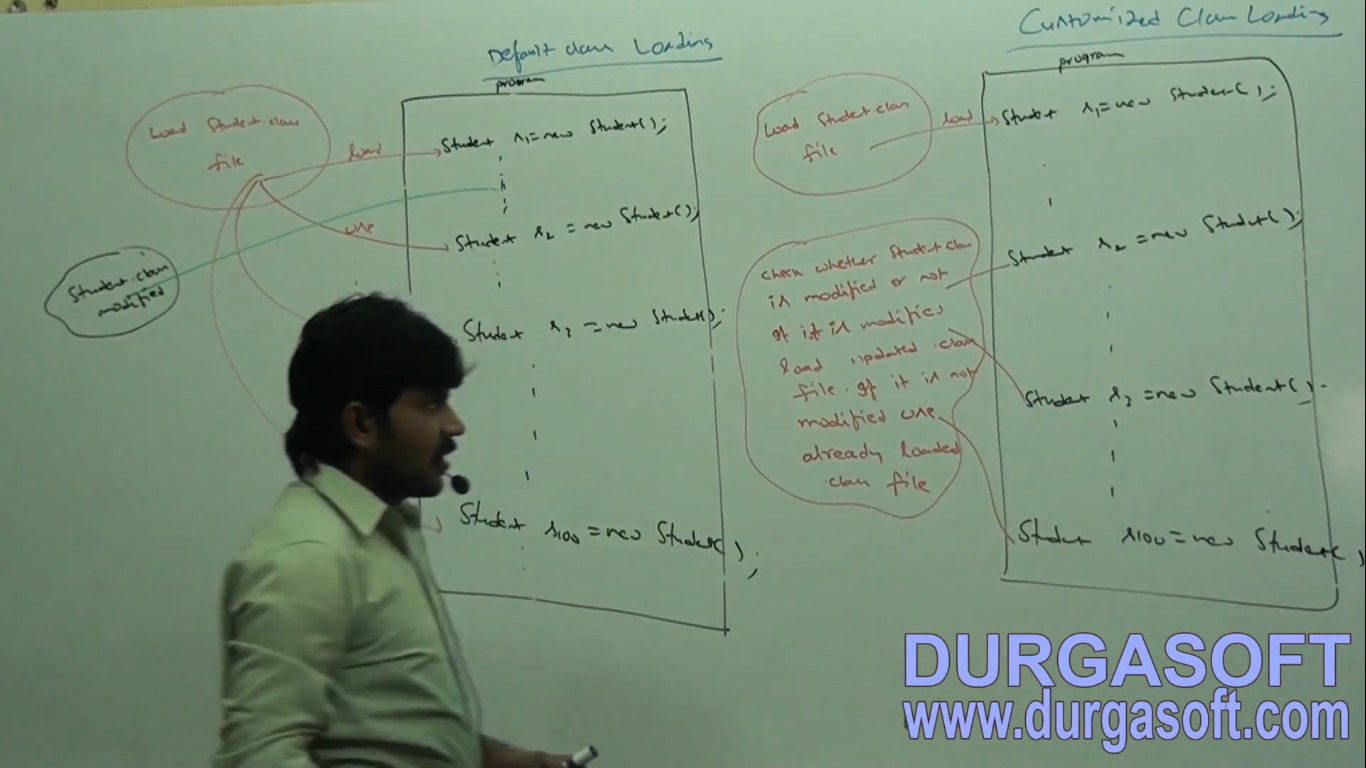 Default class Loading
program
Load Student.class
file
load
Student s1 = new Student();
use
Student s2 = new Student();
Student.class
modified
Student s3 = new Student();
Student s100 = new Student();
Customized Class Loading
program
Load Student.class
file
load
Student s1 = new Student();
Student s2 = new Student();
check whether Student.class
is modified or not
if it is modified
load updated .class
file. if it is not
modified use
already loaded
.class file
Student s3 = new Student();
Student s100 = new Student(
DURGASOFT
www.durgasoft.com